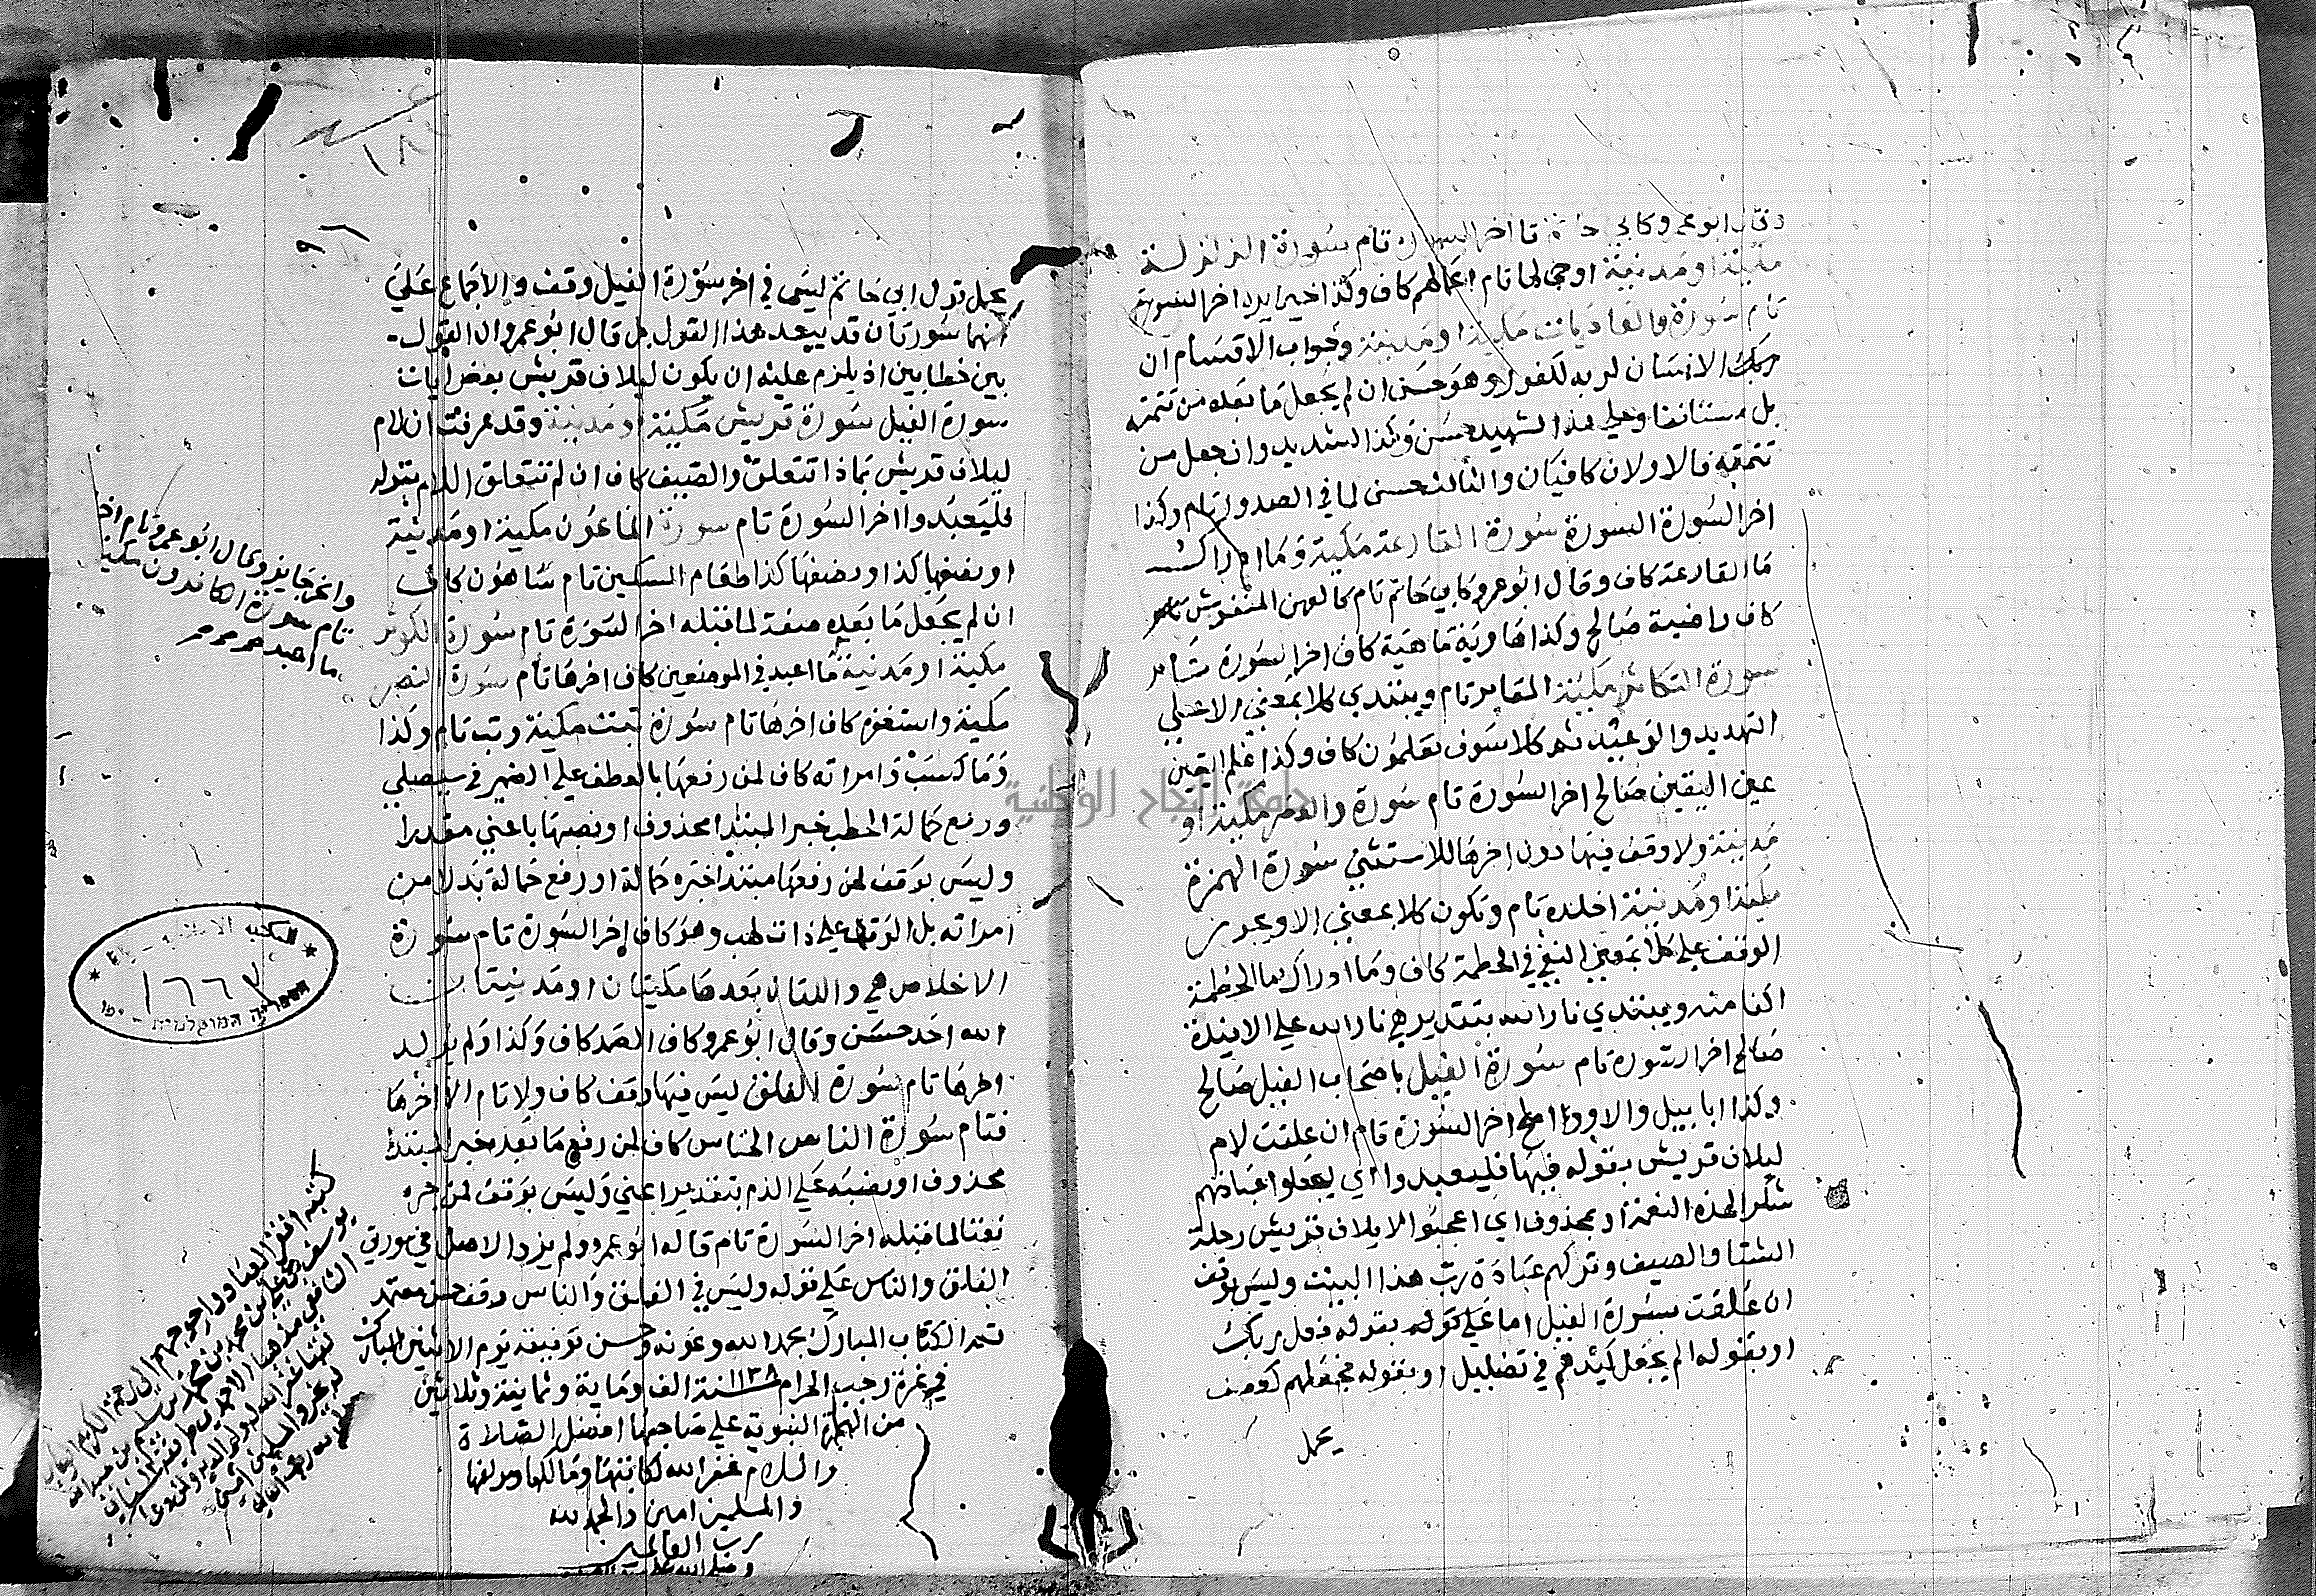 وقال ابو عمرو كابي حاتم تام اخر السورة تام سورة الزلزلة
مكية او مدنية اوحى لها تام اعمالهم كاف وكذا خيرا يره اخر السورة
تام سورة والعاديات مكية او مدنية وجواب الاقسام ان
الانسان لربه لكنود وهو حسن ان لم يجعل ما بعده من تتمته
بل مستانفا وعلى هذا لشهيد حسن وكذا لشديد وان جعل من
تتمته فالاولان كافيان والثالث حسن لما في الصدور تام وكذا
اخر السورة السورة سورة القارعة مكية وما ادراك
ما القارعة كاف وقال ابو عمرو كابي حاتم تام كالعهن المنفوش تام
كاف راضية صالح وكذا هاوية ماهية كاف اخر السورة تام
سورة التكاثر مكية المقابر تام ويبتدي كلا بمعني الا على
التهديد والوعيد ثم كلا سوف تعلمون كاف وكذا علم اليقين
عين اليقين صالح اخر السورة تام سورة والعصر مكية او
مدنية ولا وقف فيها دون اخرها للاستثني سورة الهمزة
مكية او مدنية اخلده تام وتكون كلا بمعني الا ويجوز
الوقف على كلا بمعني النفي في الحطمة كاف وما ادراك ما الحطمة
اكفا منه ويبتدي نار الله بتقدير هي نار الله على الافيدة
صالح اخر السورة تام سورة الفيل باصحاب الفيل صالح
وكذا ابابيل والاول اصلح اخر السورة تام ان علقت لام
ليلاف قريش بقوله فيها فليعبدوا اي ليجعلوا عبادتهم
شكرا لهذه النعمة او بمحذوف اي اعجبوا لايلاف قريش رحلة
الشتا والصيف وتركهم عبادة رب هذا البيت وليس بوقف
ان علقت بسورة الفيل اما على قوله بقوله فعل ربك
او بقوله الم يجعل كيدهم في تضليل او بقوله فجعلهم كعصف
يحمل
٩٦
يحمل قول ابي حاتم ليس في اخر سورة الفيل وقف والاجماع على
انهما سورتان قد يبعد هذا القول بل قال ابو عمرو ان القول
بين خطا بين اذ يلزم عليه ان يكون ليلاف قريش بعض ايات
سورة الفيل سورة قريش مكية او مدنية وقد عرفت ان لام
ليلاف قريش بماذا تتعلق والصيف كاف ان لم تتعلق اللام بقوله
فليعبدوا اخر السورة تام سورة الماعون مكية او مدنية
او نصفها كذا ونصفها كذا طعام المسكين تام ساهون كاف
ان لم يجعل ما بعده صفة لما قبله اخر السورة تام سورة الكوثر
مكية او مدنية ما اعبد في الموضعين كاف اخرها تام سورة النصر
مكية واستغفره كاف اخرها تام سورة تبت مكية وتب تام وكذا
وما كسب وامراته كاف لمن رفعها بالعطف على الضمير في سيصلي
ورفع حمالة الحطب خبر المبتدا محذوف او نصبها باعني مقدرا
وليس بوقف لمن رفعها مبتدا خبره حمالة او رفع حمالة بدلا من
امراته بل الوقف على ذات لهب وهو كاف اخر السورة تام سورة
الاخلاص هي واللتان بعدها مكيتان او مدنيتان
الله احد حسن وقال ابو عمرو كاف الصمد كاف وكذا ولم يولد
اخرها تام سورة الفلق ليس فيها وقف كاف ولا تام الا اخرها
فتام سورة الناس الخناس كاف لمن رفع ما بعد خبر المبتدا
محذوف او نصبه على الذم بتقدير اعني وليس بوقف لمن جره
نعتا لما قبله اخر السورة تام قاله ابو عمرو ولم يزد الاصل في سورتي
الفلق والناس على قوله وليس في الفلق والناس وقف حسن
تم الكتاب المبارك بحمد الله وعونه وحسن توفيقه يوم الاثنين المبارك
في غرة رجب الحرام سنة ١١٣٨ الف وماية وثمانية وثلاثين
من الهجرة النبوية على صاحبها افضل الصلاة
والسلام غفر الله لكاتبها ومالكها ومولفها
والمسلمين امين والحمد لله
رب العالمين
وقال ابو عمرو تام اخر
تام سورة الكافرون مكية
ما اعبد
١٦٦٧
كتبه افقر العباد
يوسف بن علي بن محمد بن
الشافعي مذهبا
غفر الله له ولوالديه
جامعة النجاح الوطنية